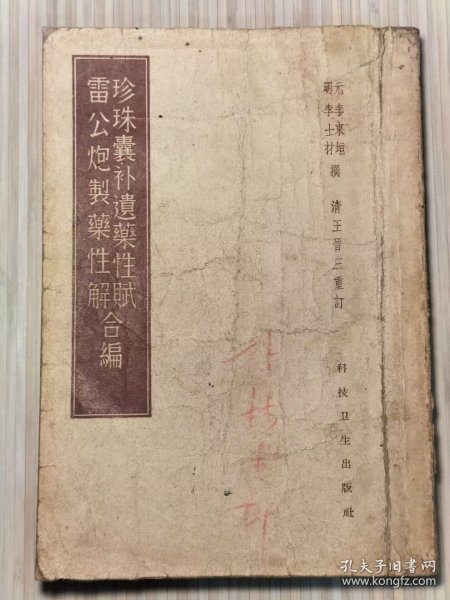 元 李東垣
明 李士材
撰 清 王晉三重訂
科技卫生出版社
珍珠囊补遺藥性賦
雷公炮製藥性解
合編
孔夫子旧书网
www.kongfz.com